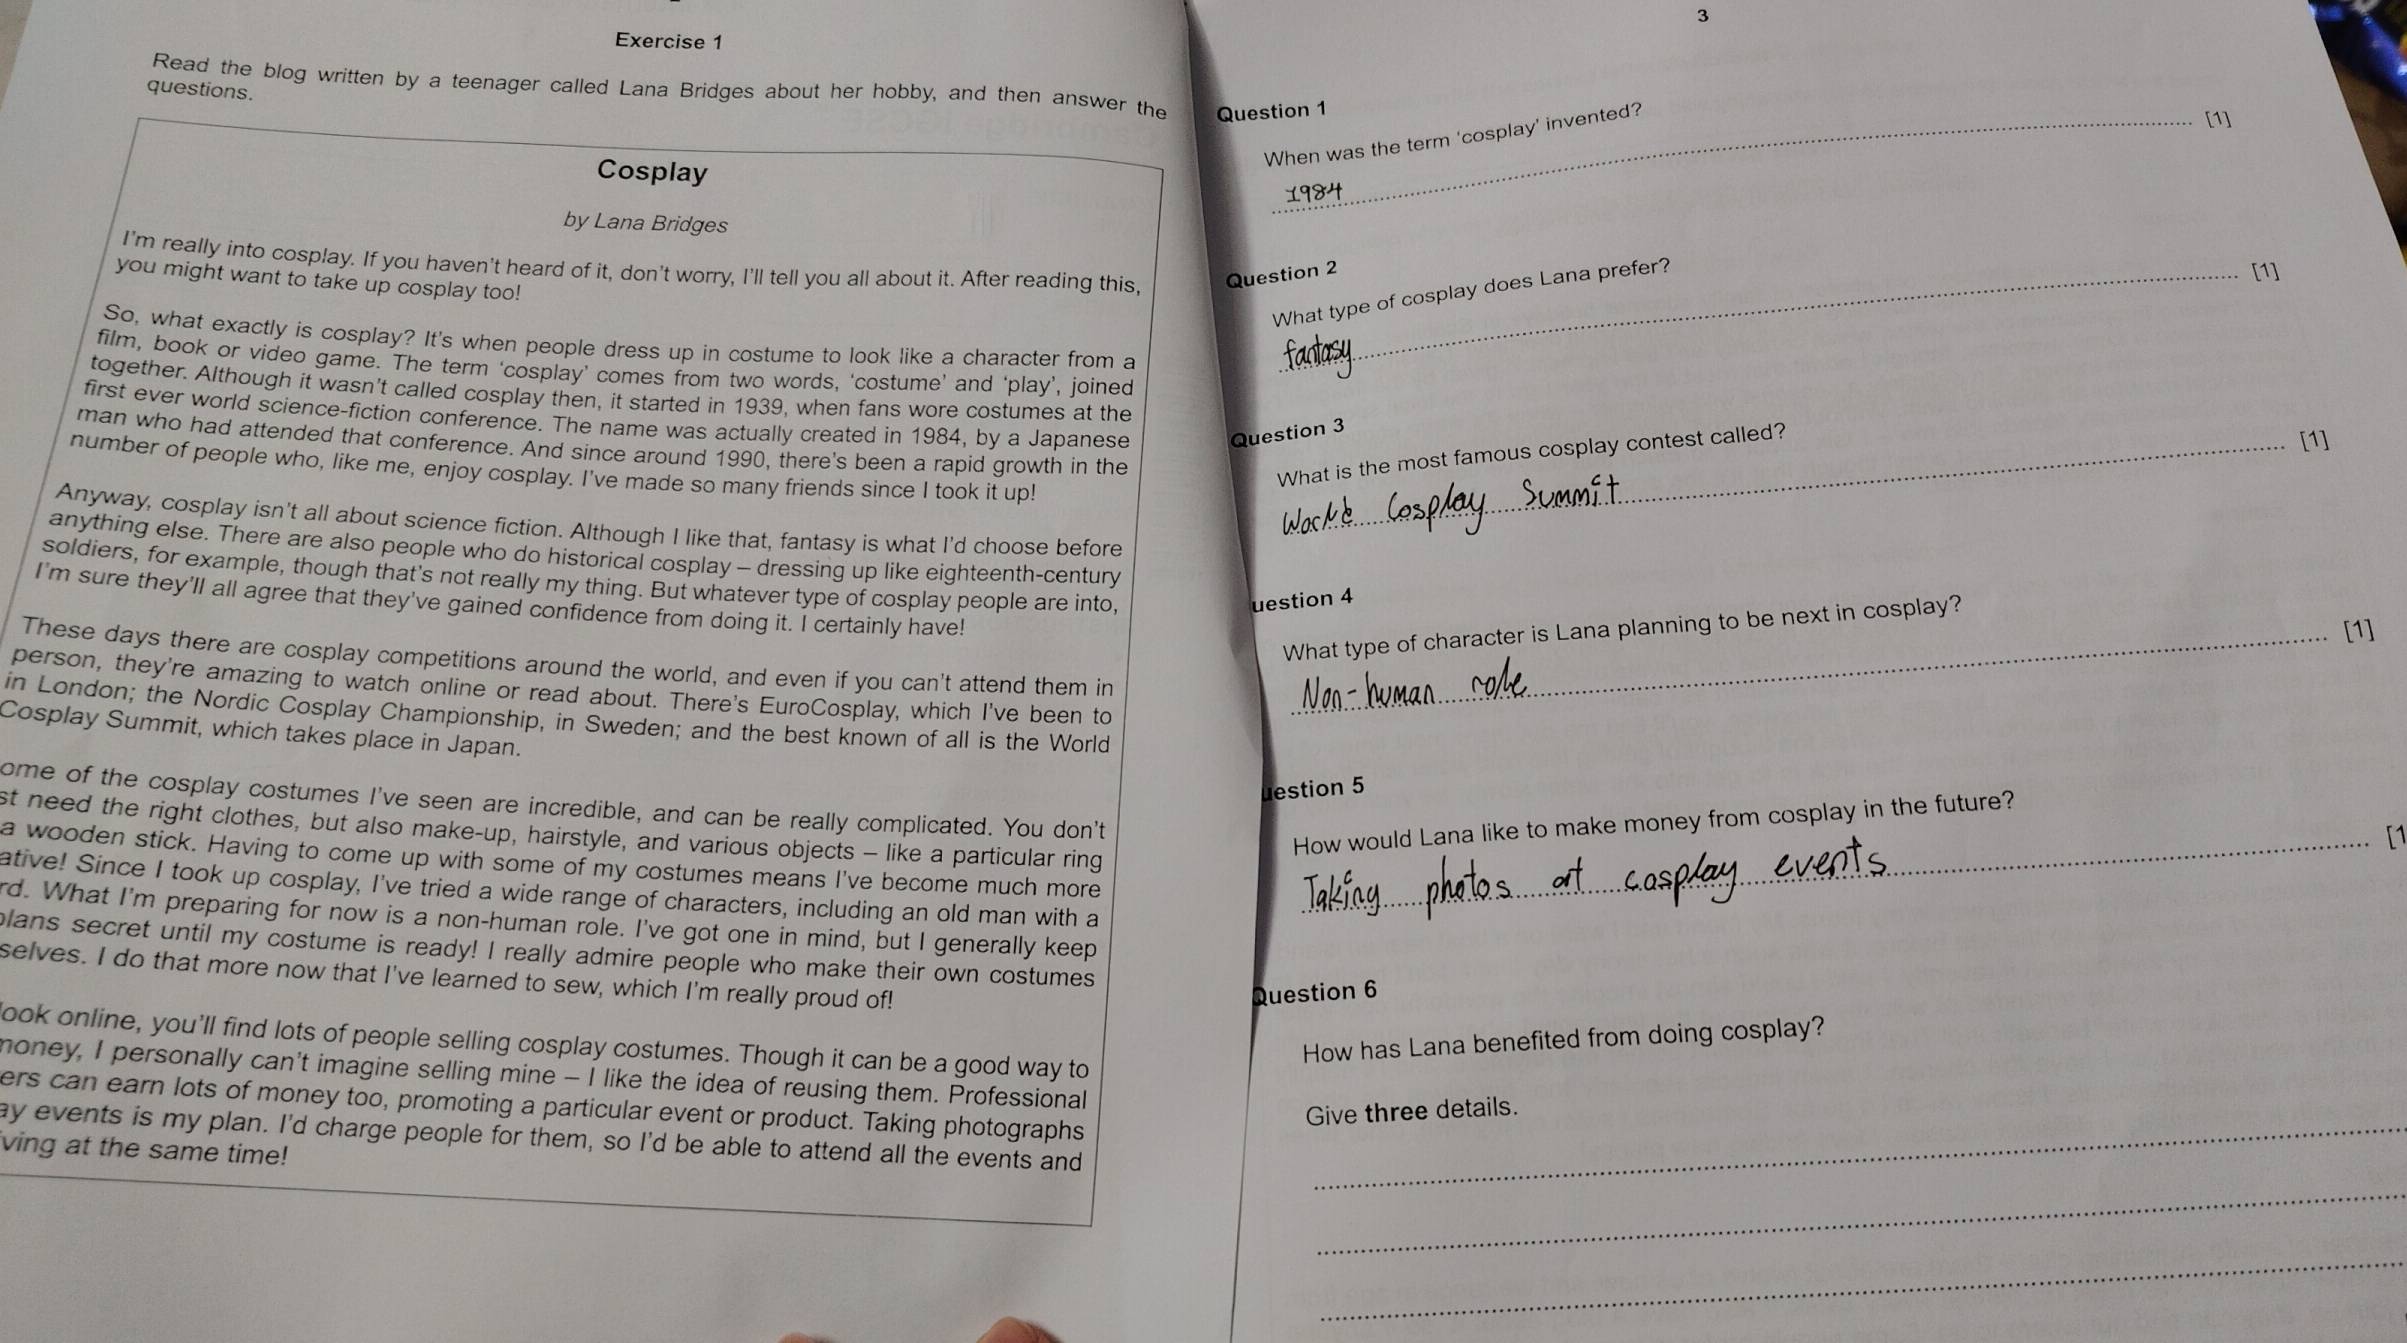 Exercise 1
Read the blog written by a teenager called Lana Bridges about her hobby, and then answer the
questions.
Cosplay
by Lana Bridges
I'm really into cosplay. If you haven't heard of it, don't worry, I'll tell you all about it. After reading this,
you might want to take up cosplay too!
So, what exactly is cosplay? It's when people dress up in costume to look like a character from a
film, book or video game. The term 'cosplay' comes from two words, 'costume' and 'play', joined
together. Although it wasn't called cosplay then, it started in 1939, when fans wore costumes at the
first ever world science-fiction conference. The name was actually created in 1984, by a Japanese
man who had attended that conference. And since around 1990, there's been a rapid growth in the
number of people who, like me, enjoy cosplay. I've made so many friends since I took it up!
Anyway, cosplay isn't all about science fiction. Although I like that, fantasy is what I'd choose before
anything else. There are also people who do historical cosplay – dressing up like eighteenth-century
soldiers, for example, though that's not really my thing. But whatever type of cosplay people are into,
I'm sure they'll all agree that they've gained confidence from doing it. I certainly have!
These days there are cosplay competitions around the world, and even if you can't attend them in
person, they're amazing to watch online or read about. There's EuroCosplay, which I've been to
in London; the Nordic Cosplay Championship, in Sweden; and the best known of all is the World
Cosplay Summit, which takes place in Japan.
ome of the cosplay costumes I've seen are incredible, and can be really complicated. You don't
st need the right clothes, but also make-up, hairstyle, and various objects – like a particular ring
a wooden stick. Having to come up with some of my costumes means I've become much more
ative! Since I took up cosplay, I've tried a wide range of characters, including an old man with a
rd. What I'm preparing for now is a non-human role. I've got one in mind, but I generally keep
plans secret until my costume is ready! I really admire people who make their own costumes
selves. I do that more now that I've learned to sew, which I'm really proud of!
look online, you'll find lots of people selling cosplay costumes. Though it can be a good way to
money, I personally can't imagine selling mine – I like the idea of reusing them. Professional
ers can earn lots of money too, promoting a particular event or product. Taking photographs
ay events is my plan. I'd charge people for them, so I'd be able to attend all the events and
ving at the same time!
3
Question 1
When was the term 'cosplay' invented?
1984 [1]
Question 2
What type of cosplay does Lana prefer?
fantasy [1]
Question 3
What is the most famous cosplay contest called?
Cosplay Summit [1]
uestion 4
What type of character is Lana planning to be next in cosplay?
Non-human role [1]
uestion 5
How would Lana like to make money from cosplay in the future?
Taking photos at cosplay events [1
Question 6
How has Lana benefited from doing cosplay?
Give three details.